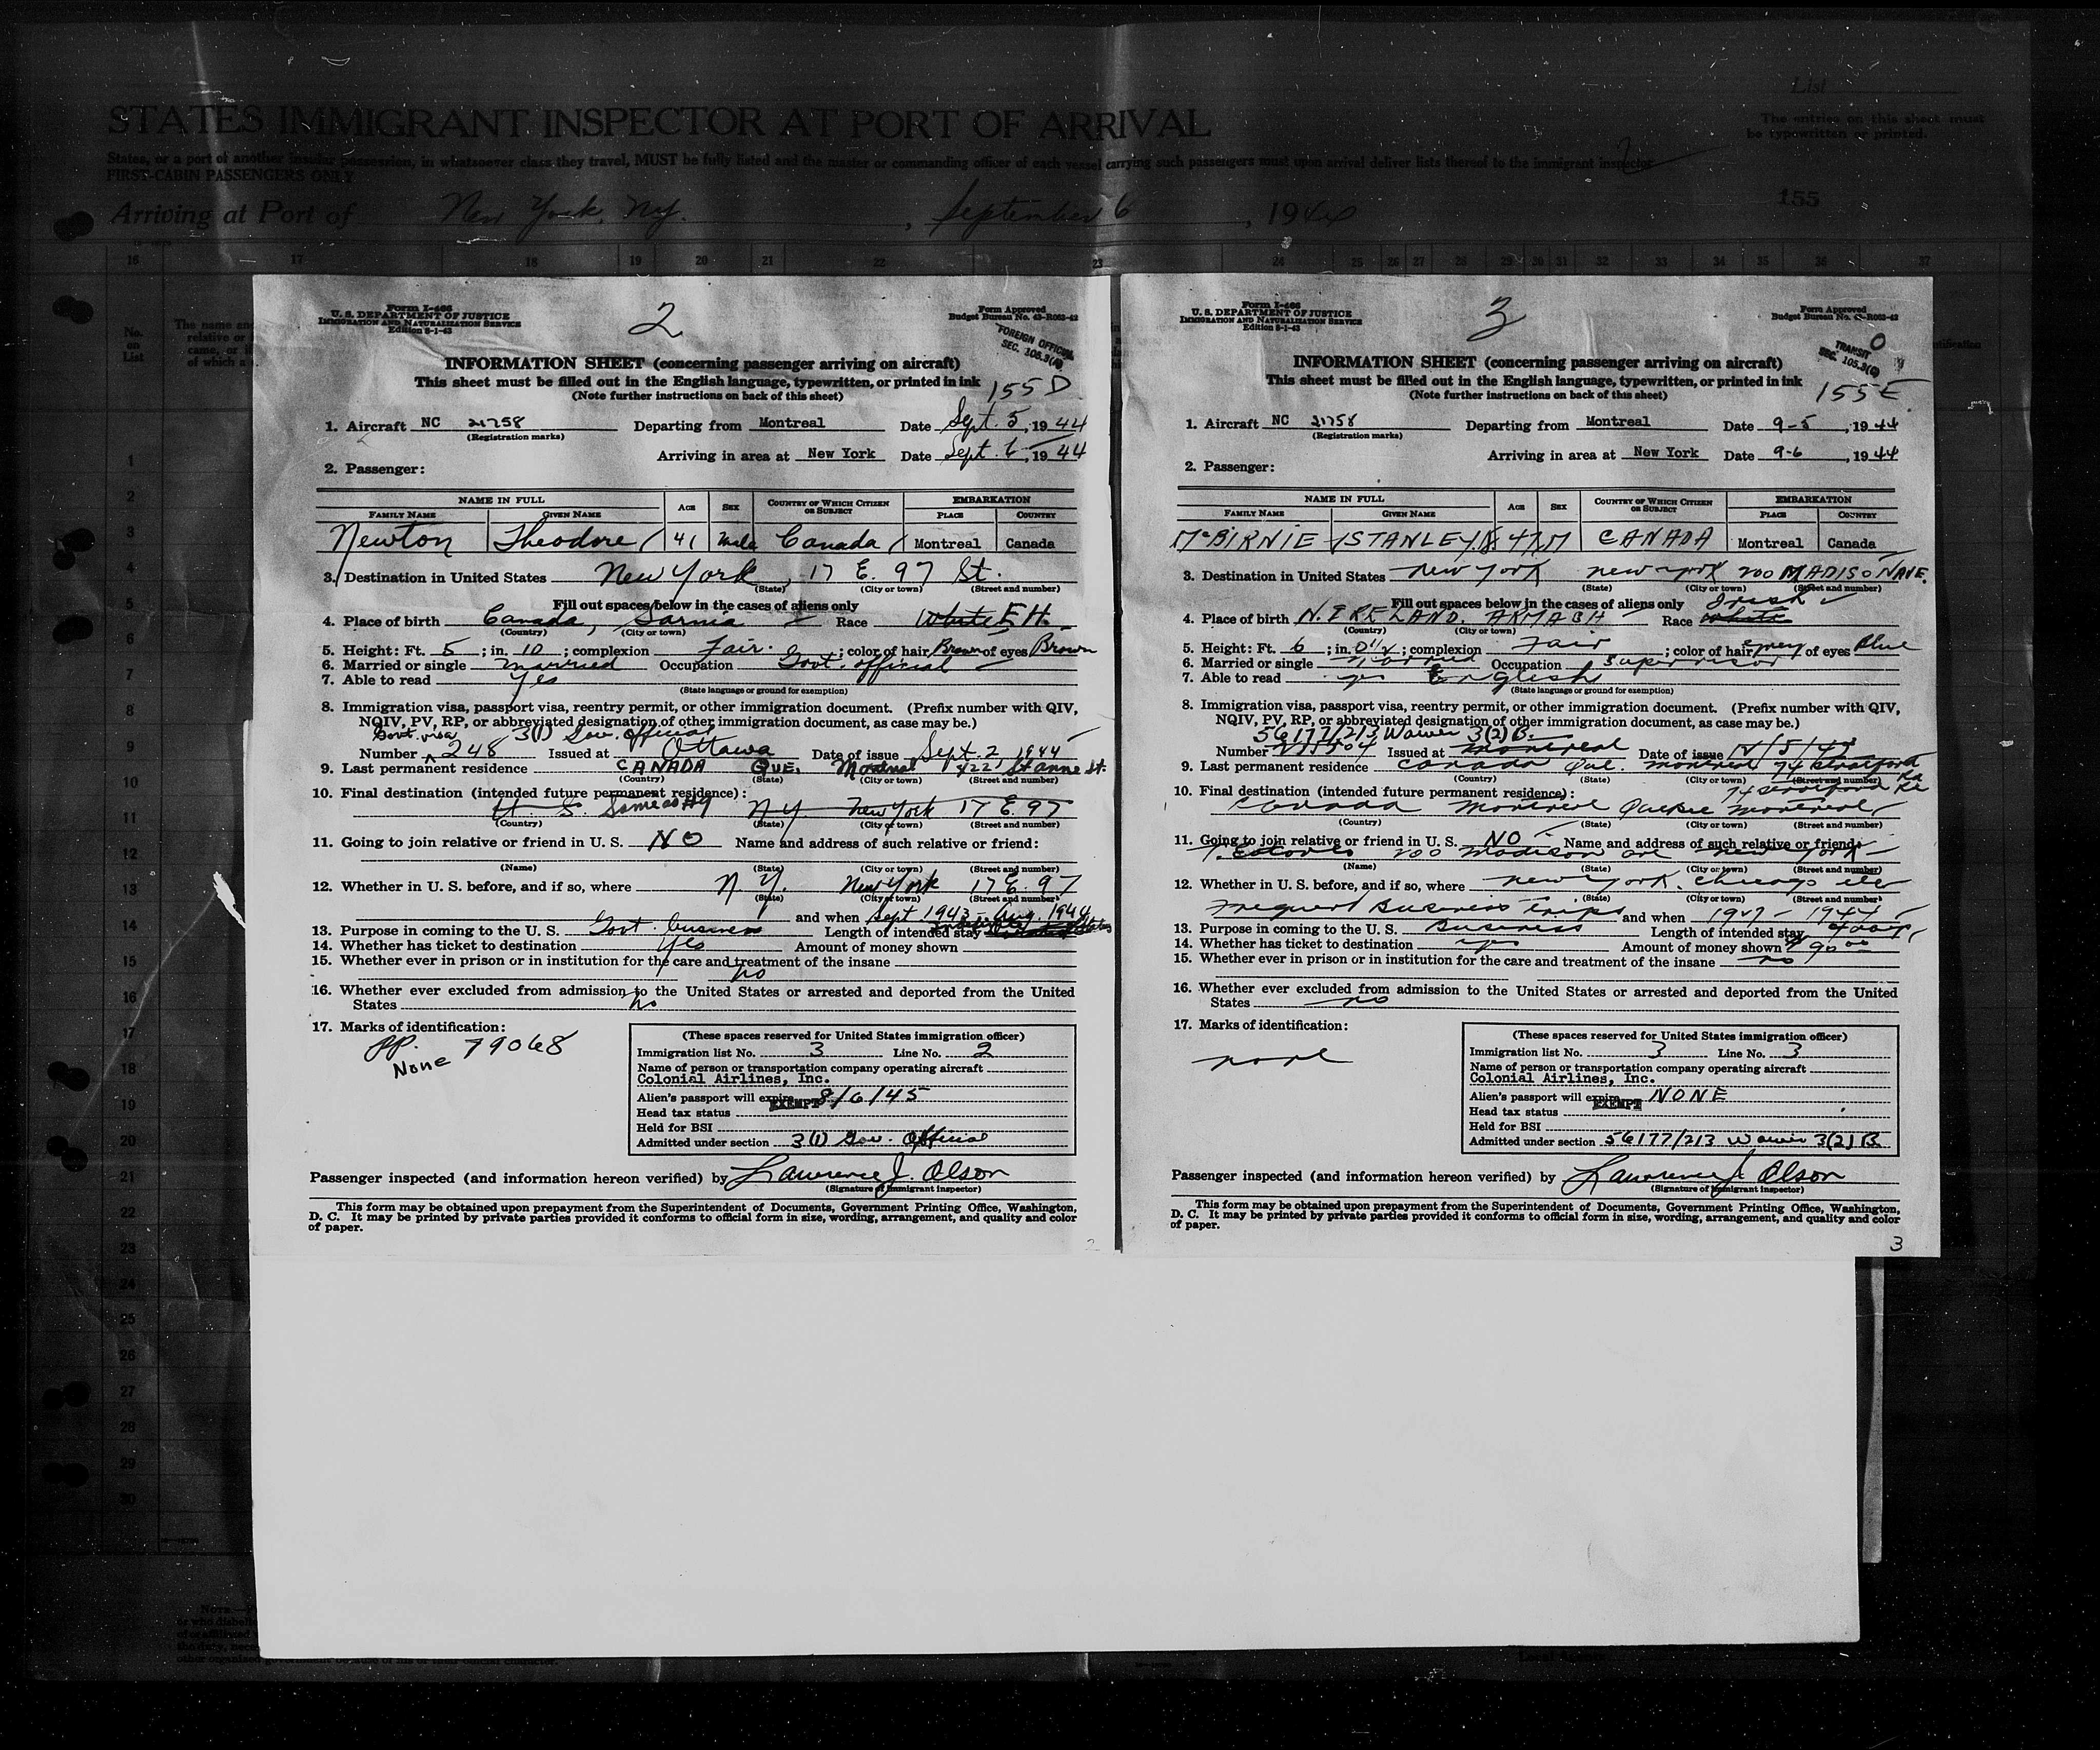 List
STATES IMMIGRANT INSPECTOR AT PORT OF ARRIVAL
The entries on this sheet must
be typewritten or printed.
States, or a port of another insular possession, in whatsoever class they travel, MUST be fully listed and the master or commanding officer of each vessel carrying such passengers must upon arrival deliver lists thereof to the immigrant inspector
FIRST-CABIN PASSENGERS ONLY
Arriving at Port of New York, N.Y. , September 6 , 1944
155
16 17 18 19 20 21 22 23 24 25 26 27 28 29 30 31 32 33 34 35 36 37
No. on List
Form I-466
U. S. DEPARTMENT OF JUSTICE
IMMIGRATION AND NATURALIZATION SERVICE
Edition 8-1-43
2
Form Approved
Budget Bureau No. 43-R062-42
FOREIGN OFFICIAL
SEC. 108.3(
INFORMATION SHEET (concerning passenger arriving on aircraft)
This sheet must be filled out in the English language, typewritten, or printed in ink
(Note further instructions on back of this sheet)
155 D
1. Aircraft NC 21758 Departing from Montreal Date Sept. 5, 1944
(Registration marks)
Arriving in area at New York Date Sept. 6, 1944
2. Passenger:
NAME IN FULL AGE SEX COUNTRY OF WHICH CITIZEN OR SUBJECT EMBARKATION
FAMILY NAME GIVEN NAME PLACE COUNTRY
Newton Theodore 41 Male Canada Montreal Canada
3. Destination in United States New York, 17 E. 97 St.
(State) (City or town) (Street and number)
Fill out spaces below in the cases of aliens only
4. Place of birth Canada, Sarnia Race White E.H.
(Country) (City or town)
5. Height: Ft. 5 ; in. 10 ; complexion Fair. ; color of hair Brown of eyes Brown
6. Married or single married Occupation Govt. official
7. Able to read yes
(State language or ground for exemption)
8. Immigration visa, passport visa, reentry permit, or other immigration document. (Prefix number with QIV,
NQIV, PV, RP, or abbreviated designation of other immigration document, as case may be.)
Govt. visa 3(1) Gov. official
Number 248 Issued at Ottawa Date of issue Sept. 2, 1944
9. Last permanent residence CANADA QUE. Montreal 422 St anne St.
(Country) (State) (City or town) (Street and number)
10. Final destination (intended future permanent residence):
U. S. Same as #9 N.Y. New York 17 E. 97
(Country) (State) (City or town) (Street and number)
11. Going to join relative or friend in U. S. NO Name and address of such relative or friend:
(Name) (State) (City or town) (Street and number)
12. Whether in U. S. before, and if so, where N. Y. New York 17 E. 97
(State) (City or town) (Street and number)
and when Sept 1943 - Aug. 1944
13. Purpose in coming to the U. S. Govt. business Length of intended stay
14. Whether has ticket to destination Yes Amount of money shown
15. Whether ever in prison or in institution for the care and treatment of the insane
no
16. Whether ever excluded from admission to the United States or arrested and deported from the United
States no
17. Marks of identification:
PP. 79068
None
(These spaces reserved for United States immigration officer)
Immigration list No. 3 Line No. 2
Name of person or transportation company operating aircraft
Colonial Airlines, Inc.
Alien's passport will expire 8/6/45
EXEMPT
Head tax status
Held for BSI
Admitted under section 3(1) Gov. Official
Passenger inspected (and information hereon verified) by Lawrence J. Olson
(Signature of immigrant inspector)
This form may be obtained upon prepayment from the Superintendent of Documents, Government Printing Office, Washington,
D. C. It may be printed by private parties provided it conforms to official form in size, wording, arrangement, and quality and color
of paper.
Form I-466
U. S. DEPARTMENT OF JUSTICE
IMMIGRATION AND NATURALIZATION SERVICE
Edition 8-1-43
3
Form Approved
Budget Bureau No. 43-R062-42
TRANSIT
SEC. 108.3(
0
INFORMATION SHEET (concerning passenger arriving on aircraft)
This sheet must be filled out in the English language, typewritten, or printed in ink
(Note further instructions on back of this sheet)
155 E
1. Aircraft NC 21758 Departing from Montreal Date 9-5, 1944
(Registration marks)
Arriving in area at New York Date 9-6, 1944
2. Passenger:
NAME IN FULL AGE SEX COUNTRY OF WHICH CITIZEN OR SUBJECT EMBARKATION
FAMILY NAME GIVEN NAME PLACE COUNTRY
McBIRNIE STANLEY 47 M CANADA Montreal Canada
3. Destination in United States New York new york 200 MADISON AVE.
(State) (City or town) (Street and number)
Fill out spaces below in the cases of aliens only Irish
4. Place of birth N. IRELAND. ARMAGH Race White
(Country) (City or town)
5. Height: Ft. 6 ; in. 0 1/2 ; complexion Fair ; color of hair grey of eyes Blue
6. Married or single Married Occupation Supervisor
7. Able to read yes English
(State language or ground for exemption)
8. Immigration visa, passport visa, reentry permit, or other immigration document. (Prefix number with QIV,
NQIV, PV, RP, or abbreviated designation of other immigration document, as case may be.)
56177/213 Waiver 3(2)B.
Number Issued at Montreal Date of issue
9. Last permanent residence Canada Que. Montreal 74 Stratford Rd
(Country) (State) (City or town) (Street and number)
10. Final destination (intended future permanent residence): 74 Stratford Rd
Canada Montreal Quebec Montreal
(Country) (State) (City or town) (Street and number)
11. Going to join relative or friend in U. S. NO Name and address of such relative or friend:
200 Madison ave New York
(Name) (State) (City or town) (Street and number)
12. Whether in U. S. before, and if so, where New York. Chicago
(State) (City or town) (Street and number)
Frequent Business trips and when 1927 - 1944
13. Purpose in coming to the U. S. Business Length of intended stay 4 days
14. Whether has ticket to destination yes Amount of money shown $90.00
15. Whether ever in prison or in institution for the care and treatment of the insane no
16. Whether ever excluded from admission to the United States or arrested and deported from the United
States no
17. Marks of identification:
none
(These spaces reserved for United States immigration officer)
Immigration list No. 3 Line No. 3
Name of person or transportation company operating aircraft
Colonial Airlines, Inc.
Alien's passport will expire NONE
EXEMPT
Head tax status
Held for BSI
Admitted under section 56177/213 Waiver 3(2)B
Passenger inspected (and information hereon verified) by Lawrence J. Olson
(Signature of immigrant inspector)
This form may be obtained upon prepayment from the Superintendent of Documents, Government Printing Office, Washington,
D. C. It may be printed by private parties provided it conforms to official form in size, wording, arrangement, and quality and color
of paper.
3
1
2
3
4
5
6
7
8
9
10
11
12
13
14
15
16
17
18
19
20
21
22
23
24
25
26
27
28
29
30